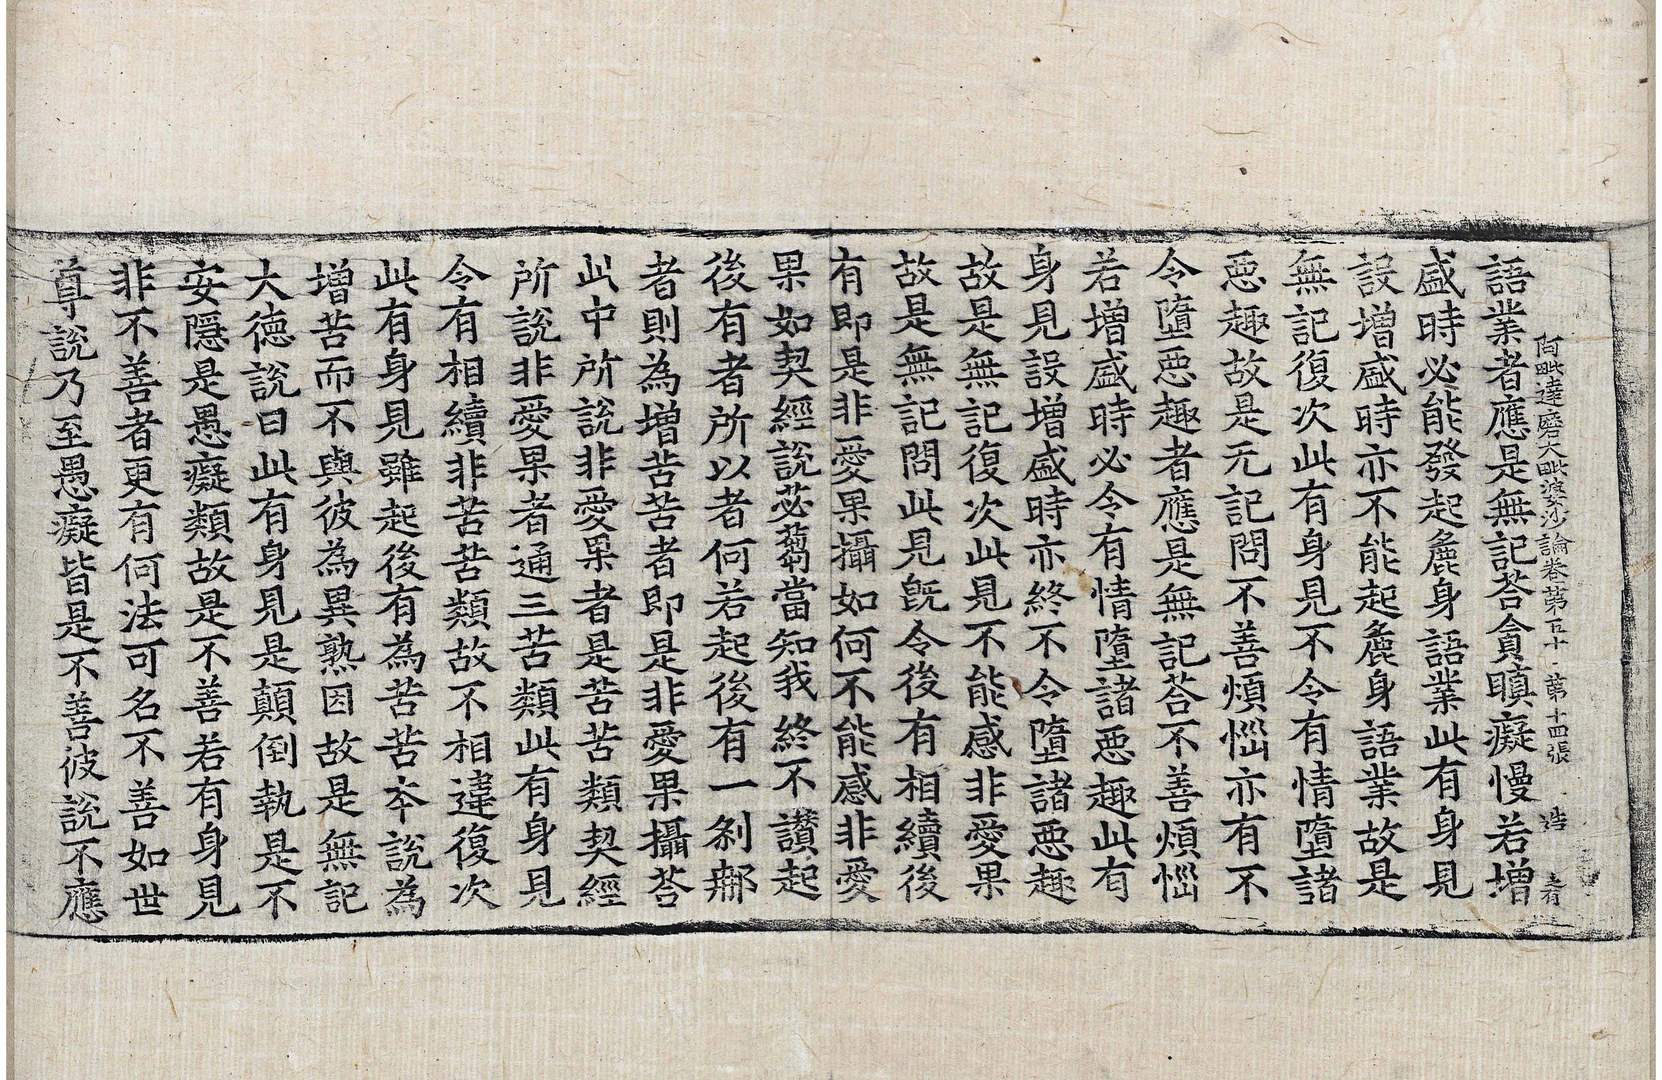 阿毗達磨大毗婆沙論卷第五十 第十四張 造
語業者應是無記荅貪瞋癡慢若增
盛時必能發起麁身語業此有身見
設增盛時亦不能起麁身語業故是
無記復次此有身見不令有情墮諸
惡趣故是无記問不善煩惱亦有不
令墮惡趣者應是無記荅不善煩惱
若增盛時必令有情墮諸惡趣此有
身見設增盛時亦終不令墮諸惡趣
故是無記復次此見不能感非愛果
故是無記問此見旣令後有相續後
有即是非愛果攝如何不能感非愛
果如契經說苾蒭當知我終不讃起
後有者所以者何若起後有一剎那
者則為增苦苦者即是非愛果攝荅
此中所說非愛果者是苦苦類契經
所說非愛果者通三苦類此有身見
令有相續非苦苦類故不相違復次
此有身見雖起後有為苦苦本說為
增苦而不與彼為異熟因故是無記
大德說曰此有身見是顛倒執是不
安隱是愚癡類故是不善若有身見
非不善者更有何法可名不善如世
尊說乃至愚癡皆是不善彼說不應